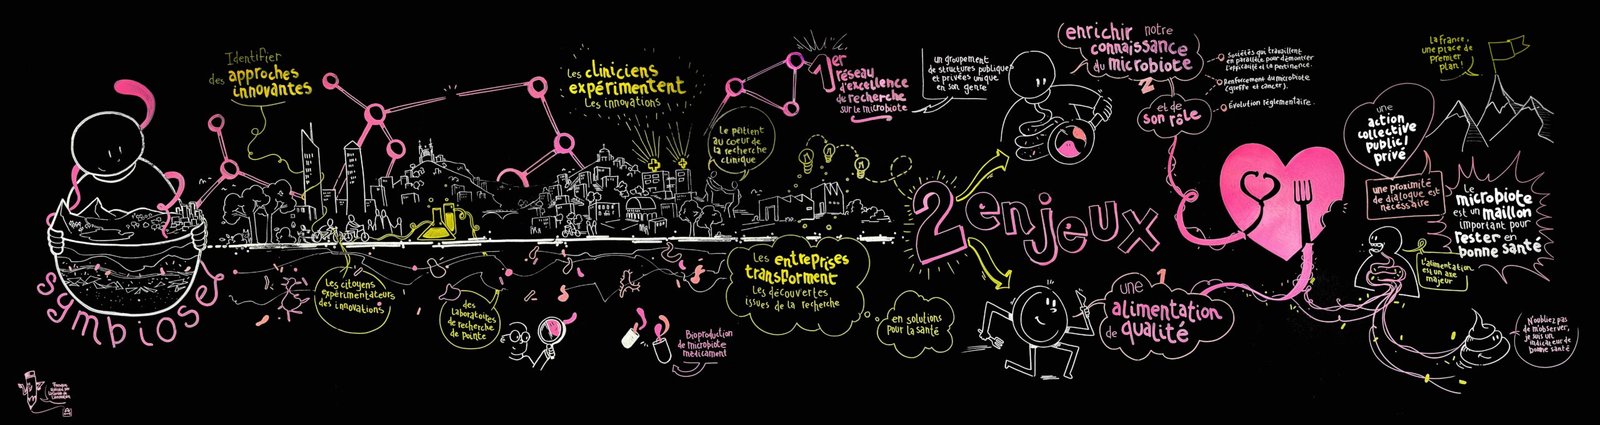 symbiose
Identifier
des approches
innovantes
Les citoyens
expérimentateurs
des innovations
Les cliniciens
expérimentent
Les innovations
des
Laboratoires
de recherche
de pointe
Le patient
au coeur de
la recherche
clinique
Bioproduction
de microbiote
médicament
1er
réseau
d'excellence
de recherche
sur le microbiote
un groupement
de structures publiques
et privées unique
en son genre
Les entreprises
transforment
Les découvertes
issues de la recherche
en solutions
pour la santé
2 enjeux
enrichir notre
connaissance
du microbiote
2
et de
son rôle
Sociétés qui travaillent
en parallèle pour démontrer
l'efficacité et la pertinence.
Renforcement du microbiote
(greffe et cancer).
Évolution réglementaire.
1
une
alimentation
de qualité
une
action
collective
public/
privé
une proximité
de dialogue est
nécessaire
La France,
une place de
premier
plan!
Le
microbiote
est un maillon
important pour
rester en
bonne santé
L'alimentation
est un axe
majeur
N'oubliez pas
de m'observer,
je suis un
indicateur de
bonne santé